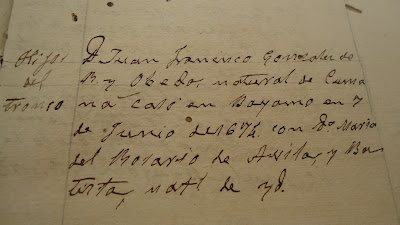 Hijos
del
tronco
D. Juan Francisco Gonzalez de
R. y Obedo, natural de Cuma
ná casó en Bayamo en 7
de Junio de 1672 con Dª Maria
del Rosario de Avila, y Ba
tista, natl de yd.